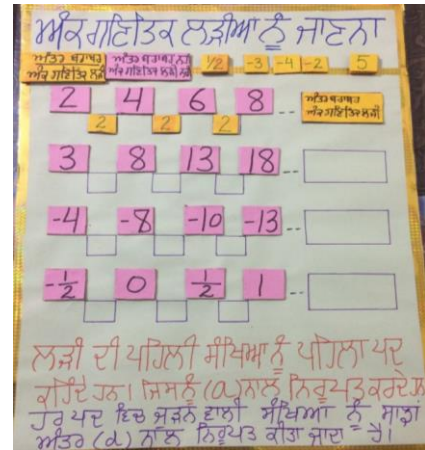 ਅੰਕਗਣਿਤਿਕ ਲੜੀਆਂ ਨੂੰ ਜਾਣਨਾ
ਅੰਤਰ ਬਰਾਬਰ ਅੰਤਰ ਬਰਾਬਰ ਨਹੀਂ 1/2 -3 -4 -2 5
ਅੰਕ ਗਣਿਤਿਕ ਲੜੀ ਅੰਕ ਗਣਿਤਿਕ ਲੜੀ ਨਹੀਂ
2 4 6 8 -- ਅੰਤਰ ਬਰਾਬਰ
2 2 2 ਅੰਕ ਗਣਿਤਿਕ ਲੜੀ
3 8 13 18 --
-4 -8 -10 -13 --
-1/2 0 1/2 1 --
ਲੜੀ ਦੀ ਪਹਿਲੀ ਸੰਖਿਆ ਨੂੰ ਪਹਿਲਾ ਪਦ
ਕਹਿੰਦੇ ਹਨ। ਜਿਸਨੂੰ (a) ਨਾਲ ਨਿਰੂਪਤ ਕਰਦੇ ਹਨ
ਹਰ ਪਦ ਵਿਚ ਜੁੜਨ ਵਾਲੀ ਸੰਖਿਆ ਨੂੰ ਸਾਂਝਾ
ਅੰਤਰ (d) ਨਾਲ ਨਿਰੂਪਤ ਕੀਤਾ ਜਾਂਦਾ ਹੈ।